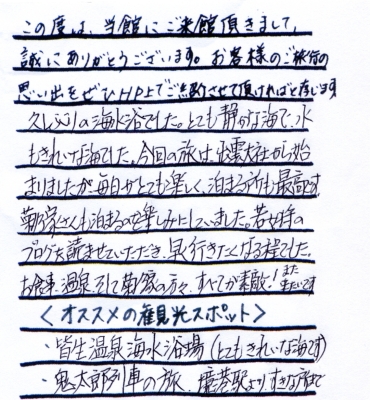 この度は、当館にご来館頂きまして、
誠にありがとうございます。お客様のご旅行の
思い出をぜひHP上でご紹介させて頂ければと存じます
久しぶりの海水浴でした。とても静かな海で、水
もきれいな海でした。今回の旅は、出雲大社から始
まりましたが毎日がとても楽しく、泊まる所も最高です
菊乃家さんも泊まるのを楽しみにしていました。若女将の
ブログを読ませていただき、早く行きたくなる程でした。
お食事、温泉、そして菊乃家の方々、すべてが素敵!また
来たいです
＜オススメの観光スポット＞
・皆生温泉海水浴場(とてもきれいな海です)
・鬼太郎列車の旅、境港駅よりすきな所まで